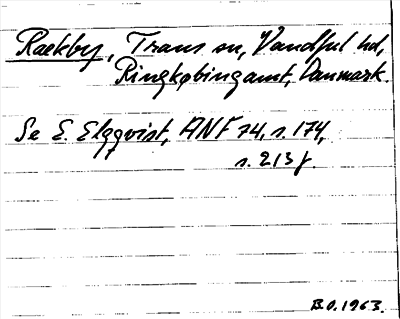 Rækby, Trans sn, Vandful hd,
Ringkøbingamt, Danmark.
Se E. Elgqvist, ANF 74, s. 174,
s. 213 f.
B.O. 1963.